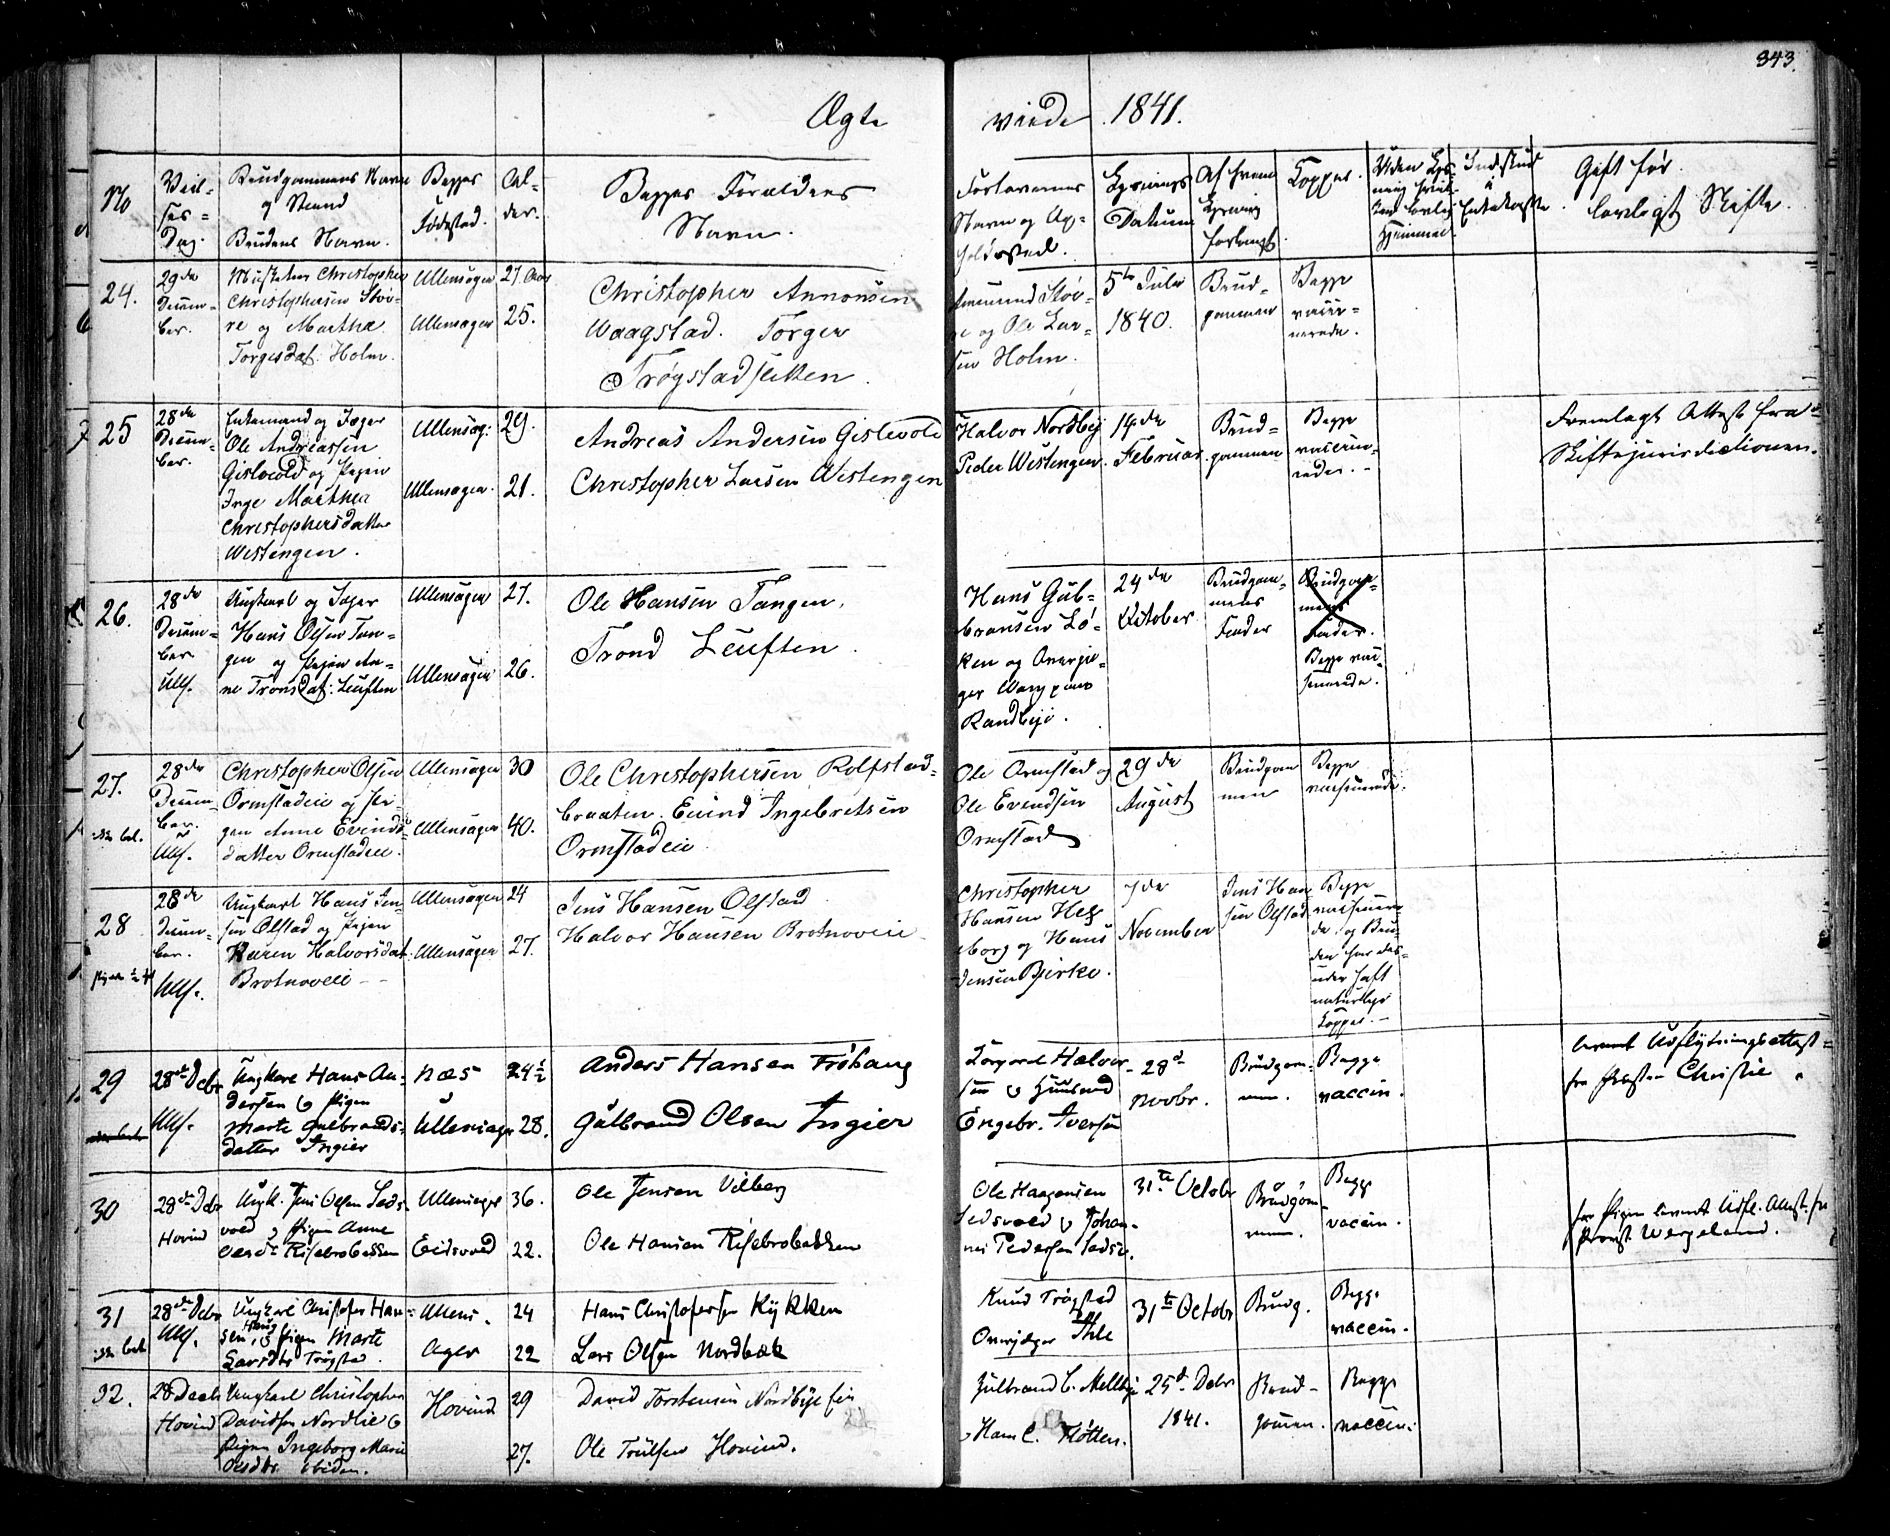 343.
Ægte viede 1841.
No
Viel-
ses-
Dag.
Brudgommens Navn
og Stand
Brudens Navn.
Begges
Fødested.
Al-
der.
Begges Forældres
Navn.
Forlovernes
Navn og Op-
holdssted.
Lysnings
Datum
Af hvem
Lysning
forlangt.
Kopper.
Gift før.
lovligt Skifte.
24.
29de
Decem-
ber.
Christopher
Christophersen
re og Marthe
Torgersdat: Holm.
Ullensager
Ullensager
27 Aar
25.
Christopher Amonsen
Waagstad. Torger
Trøgstad
re og Ole Lar-
sen Holm.
5te Juli
1840.
Brud-
gommen
Begge
vacci-
nerede.
25
28de
Decem-
ber.
Enkemand og Jæger
Ole Andreassen
Gislevold og Pigen
Inge Marthea
Christophersdatter
Westengen.
Ullensag:
Ullensager.
29.
21.
Andreas Andersen Gislevold
Christopher Larsen Westengen
Halvor Nordby
Peder Westengen.
14de
Februar.
Brud-
gommen
Begge
vaccine-
rede. -
Fremlagt Attest fra
Skiftejurisdictionen.
26.
28de
Decem-
ber.
Ull.
Ungkarl og Jæger
Hans Olsen Tan-
gen og Pigen An-
ne Tronsdat: Leuften
Ullensager
Ullensager
27.
26.
Ole Hansen Tangen.
Trond Leuften.
Hans Gul-
bransen Lø-
ken og
Randbye.
24de
October
Brudgom-
mens
Fader
Brudgom-
mens
Fader.
Begge vac-
cinerede.
27.
28de
Decem-
ber.
Ull.
Christopher Olsen
Ormstadeie og Pi-
gen Anne Evinds-
datter Ormstadeie.
Ullensager
Ullensager
30
40.
Ole Christophersen Rolfstad-
braaten. Evind Ingebretsen
Ormstadeie
Ole Ormstad og
Ole Evendsen
Ormstad
29de
August
Brudgom
men
Begge
vaccinerede.
28
28de
Decem-
ber.
Ull.
Ungkarl Hans Jen-
sen Olstad og Pigen
Karen Halvorsdat:
Brotnoveie - -
Ullensager
Ullensager
24
27.
Jens Hansen Olstad
Halvor Hansen Brotnoveie
Christopher
Hansen Hel
borg og Hans
Jensen Bjerke.
7de
November
Jens Han
sen Olstad
Begge
vaccinere-
de og Bru-
den har des-
uden haft
naturlige
Kopper. -
29
28de Dcbr
Ull.
Ungkarl Hans An-
dersen og Pigen
Marte Gulbrands-
datter Ingier
Næs
Ullensager
24½
28.
Anders Hansen Frøhaug
Gulbrand Olsen Ingier
Halvor-
sen og
Engebr. Iversen
28d
Novbr.
Brudgom-
men.
Begge
vaccin.
leveret Udflytningsattest
fra Præsten Christie.
30
28de Dcbr
Hovind
Ungk. Jens Olsen Sæds-
vold og Pigen Anne
Olesdt: Risebrobakken
Ullensager
Eidsvold
36.
22.
Ole Jensen Vilberg
Ole Hansen Risebrobakken
Ole Haagensen
Sedsvold og Johan-
nes Pedersen Sedsv.
31te Octobr
Brudgom-
men.
Begge
vaccin.
for Pigen leveret Udfl. Attest fra
Provst Wergeland.
31
28de Dcbr
Ull.
Ungkarl Christofer Han-
sen, Haug og Pigen Marte
Larsdtr Trøgstad.
Ullens.
Ager
24
22
Hans Christofersen Kykken
Lars Olsen Nordbæk
Knud Trøgstad
Ihle
31te Octobr
Brudg.
Begge
vaccin.
32.
28 Decbr
Hovind
Ungkarl Christopher
Davidsen Nordlie og
Pigen Ingeborg Marie
Olsdtr.
Hovind
29
27.
David Torstensen Nordbye
Ole Trulsen Hovind.
Gulbrand C. Melby
Hans C. Fløtten.
25d Dcbr
1841.
Brud-
gommen.
Begge
vaccin.